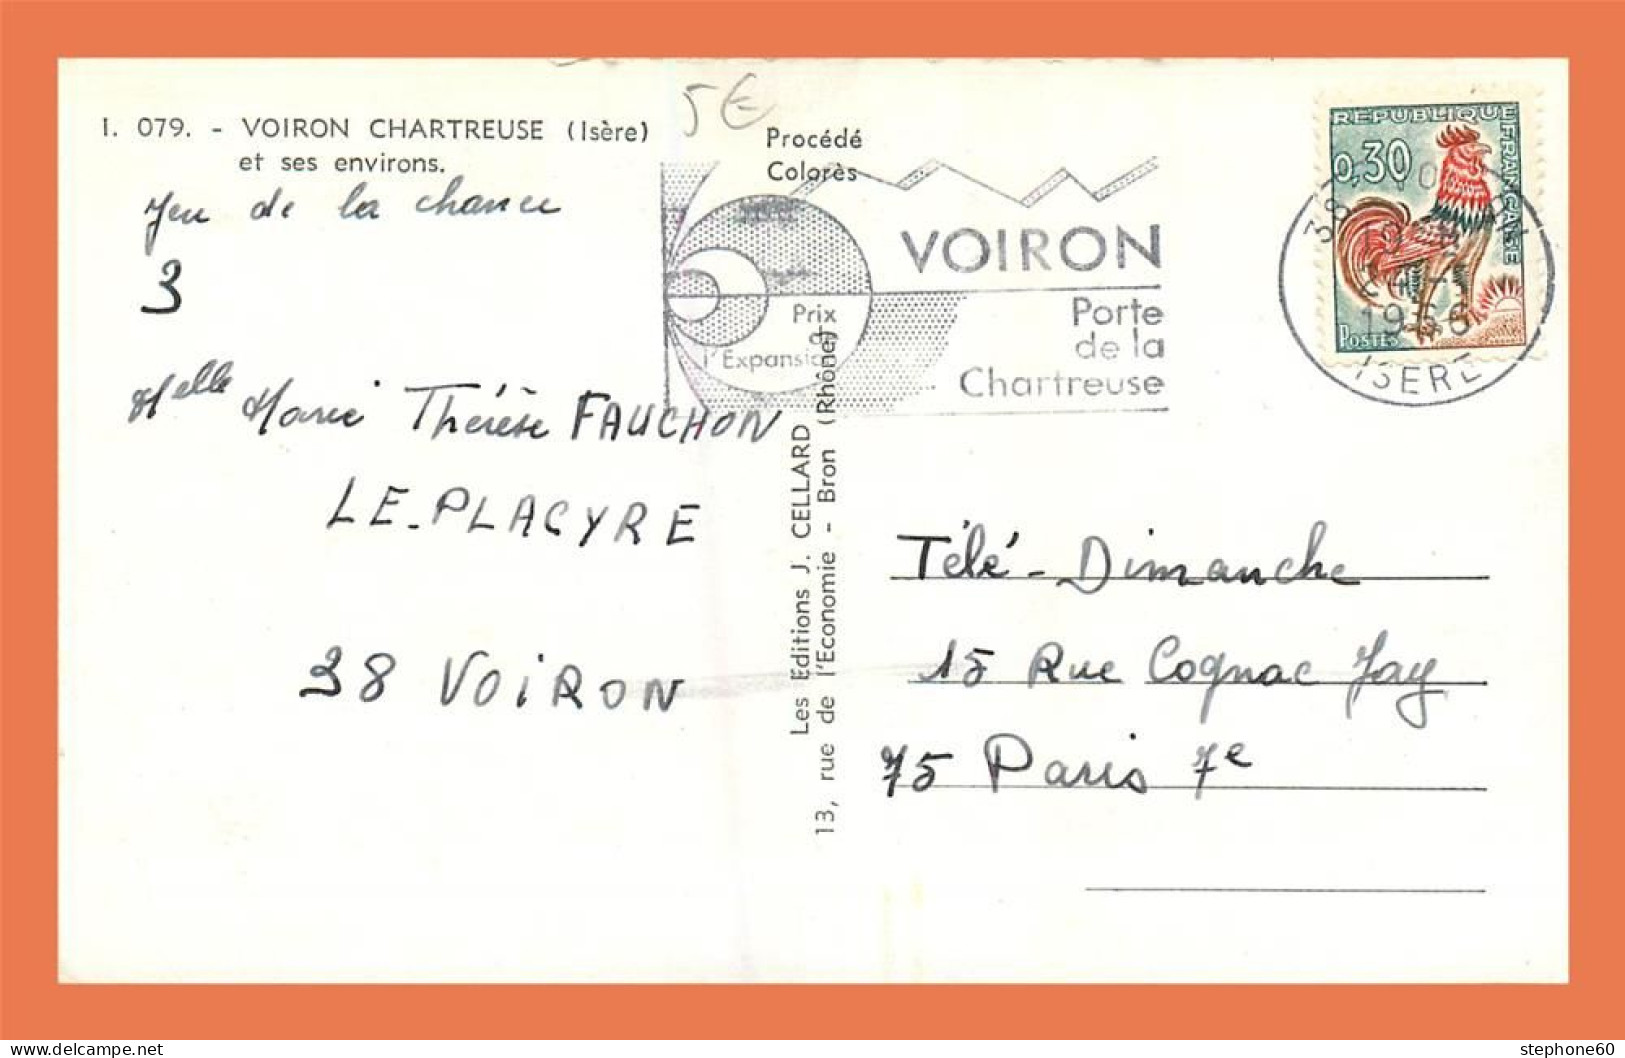 I. 079. - VOIRON CHARTREUSE (Isère)
et ses environs.
5€
Procédé
Colorès
Jeu de la chance
3
Melle Marie Thérèse FAUCHON
LE-PLACYRE
38 VOIRON
VOIRON
Porte
de la
Chartreuse
Prix
l'Expansion
REPUBLIQUE FRANÇAISE
0,30
POSTES
38
1966
ISERE
Les Editions J. CELLARD
13, rue de l'Economie - Bron (Rhône)
Télé-Dimanche
15 Rue Cognac Jay
75 Paris 7e
delcampe.net
stephone60